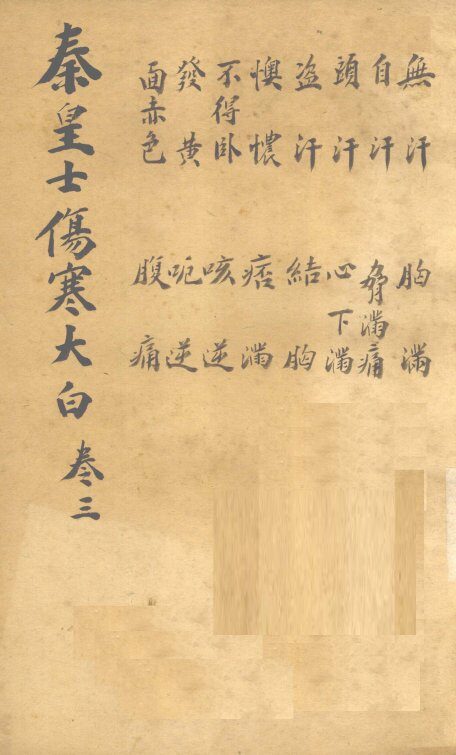 無汗
自汗
頭汗
盗汗
懊憹
不得卧
發黃
面赤色
胸滿
脅滿痛
心下滿
結胸
痞滿
咳逆
呃逆
腹痛
秦皇士傷寒大白 卷三